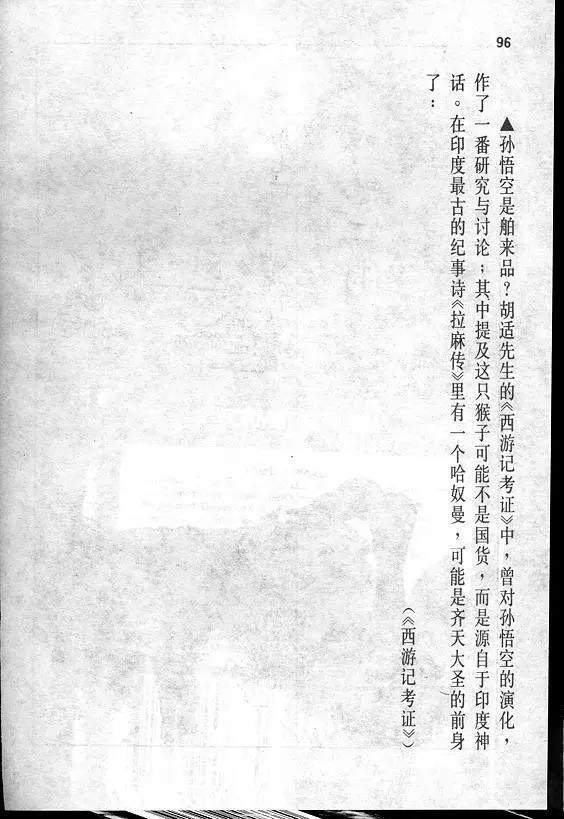 96
▲孙悟空是舶来品？胡适先生的《西游记考证》中，曾对孙悟空的演化，
作了一番研究与讨论；其中提及这只猴子可能不是国货，而是源自于印度神
话。在印度最古的纪事诗《拉麻传》里有一个哈奴曼，可能是齐天大圣的前身
了：
（《西游记考证》）